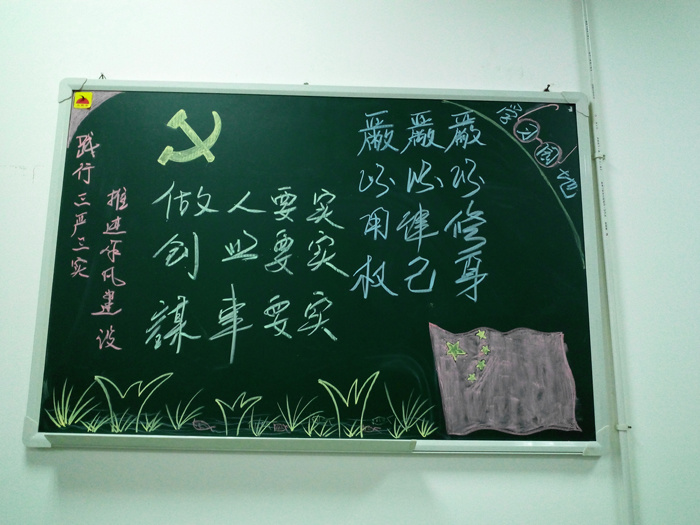 践行三严三实
推进作风建设
做人要实
创业要实
謀事要实
嚴以修身
嚴以律己
嚴以用权